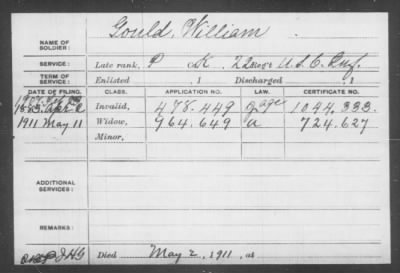 NAME OF SOLDIER: Gould, William
SERVICE: Late rank, P Co. K, 22 Reg't U.S.C. Inf.
TERM OF SERVICE: Enlisted , 1 Discharged , 1
DATE OF FILING. CLASS. APPLICATION NO. LAW. CERTIFICATE NO.
Invalid, 478.449 1044.333.
1911 May 11 Widow, 964.649 a 724.627
Minor,
ADDITIONAL SERVICES:
REMARKS:
Died May 2, 1911, at